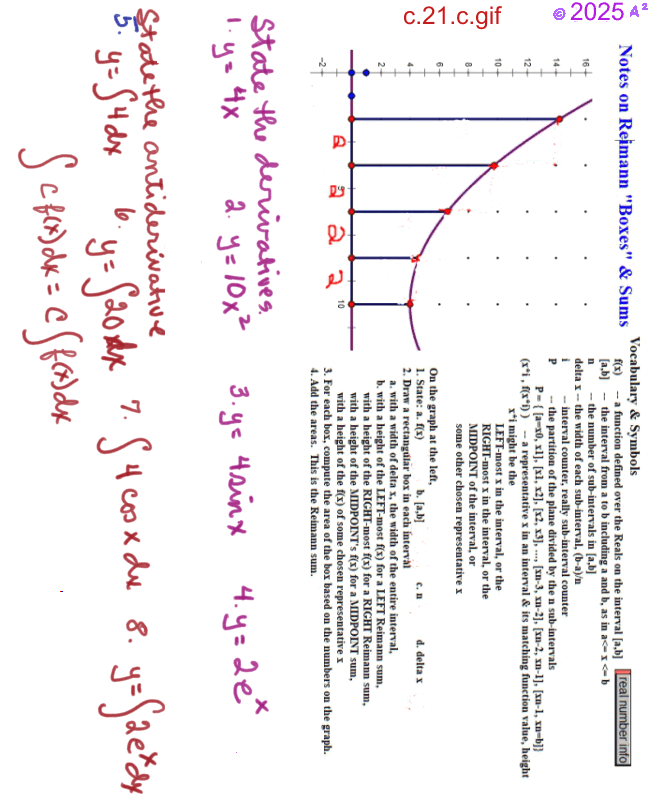 c.21.c.gif
© 2025 A²
Notes on Reimann "Boxes" & Sums
-2 2 4 6 8 10 12 14 16
5 10
2 2 2 2
Vocabulary & Symbols
real number info
f(x) -- a function defined over the Reals on the interval [a,b]
[a,b] -- the interval from a to b including a and b, as in a<= x <= b
n -- the number of sub-intervals in [a,b]
delta x -- the width of each sub-interval, (b-a)/n
i -- interval counter, really sub-interval counter
P -- the partition of the plane divided by the n sub-intervals
P = { [a=x0, x1], [x1, x2], [x2, x3], ..., [xn-3, xn-2], [xn-2, xn-1], [xn-1, xn=b]}
(x*i , f(x*i) ) -- a representative x in an interval & its matching function value, height
x*i might be the
LEFT-most x in the interval, or the
RIGHT-most x in the interval, or the
MIDPOINT of the interval, or
some other chosen representative x
On the graph at the left,
1. State: a. f(x) b. [a,b] c. n d. delta x
2. Draw a rectangular box in each interval
a. with a width of delta x, the width of the entire interval,
b. with a height of the LEFT-most f(x) for a LEFT Reimann sum,
with a height of the RIGHT-most f(x) for a RIGHT Reimann sum,
with a height of the MIDPOINT's f(x) for a MIDPOINT sum,
with a height of the f(x) of some chosen representative x
3. For each box, compute the area of the box based on the numbers on the graph.
4. Add the areas. This is the Reimann sum.
State the derivatives.
1. y = 4x 2. y = 10x² 3. y = 4sinx 4. y = 2eˣ
State the antiderivative
5. y = ∫4dx 6. y = ∫20dx 7. ∫4 cosx dx 8. y = ∫2eˣdx
∫c f(x)dx = c∫f(x)dx